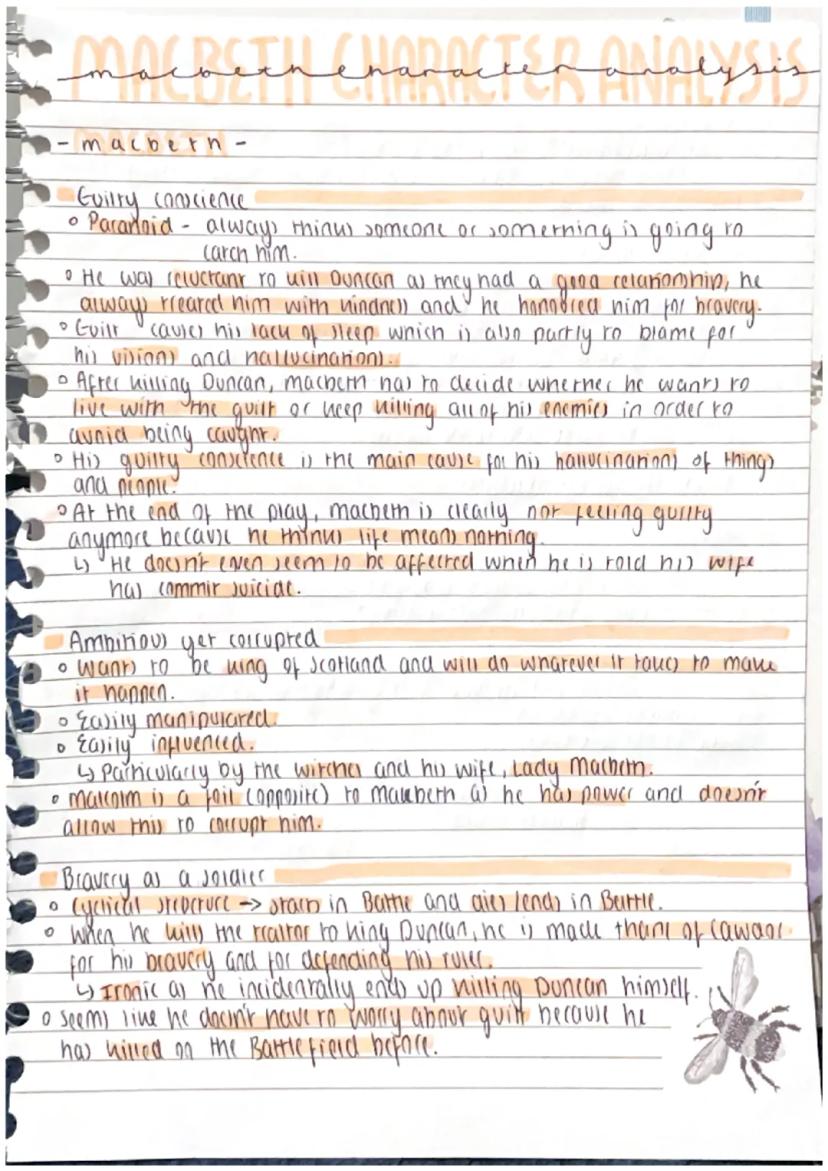 MACBETH CHARACTER ANALYSIS
macbeth character analysis
- macbeth -
Guilty conscience
Paranoid - always thinks someone or something is going to
catch him.
He was reluctant to kill Duncan as they had a good relationship, he
always treated him with kindness and he honoured him for bravery.
Guilt causes his lack of sleep which is also partly to blame for
his visions and hallucinations.
After killing Duncan, macbeth has to decide whether he wants to
live with the guilt or keep killing all of his enemies in order to
avoid being caught.
His guilty conscience is the main cause for his hallucinations of things
and people.
At the end of the play, macbeth is clearly not feeling guilty
anymore because he thinks life means nothing.
↳ He doesn't even seem to be affected when he is told his wife
has commit suicide.
Ambitious yet corrupted
Wants to be king of Scotland and will do whatever it takes to make
it happen.
Easily manipulated.
Easily influenced.
↳ Particularly by the witches and his wife, Lady Macbeth.
Malcolm is a foil (opposite) to Macbeth as he has power and doesn't
allow this to corrupt him.
Bravery as a soldier
Cyclical structure → starts in Battle and dies/ends in Battle.
When he kills the traitor to king Duncan, he is made thane of Cawdor
for his bravery and for defending his ruler.
↳ Ironic as he incidentally ends up killing Duncan himself.
Seems like he doesn't have to worry about guilt because he
has killed on the Battlefield before.